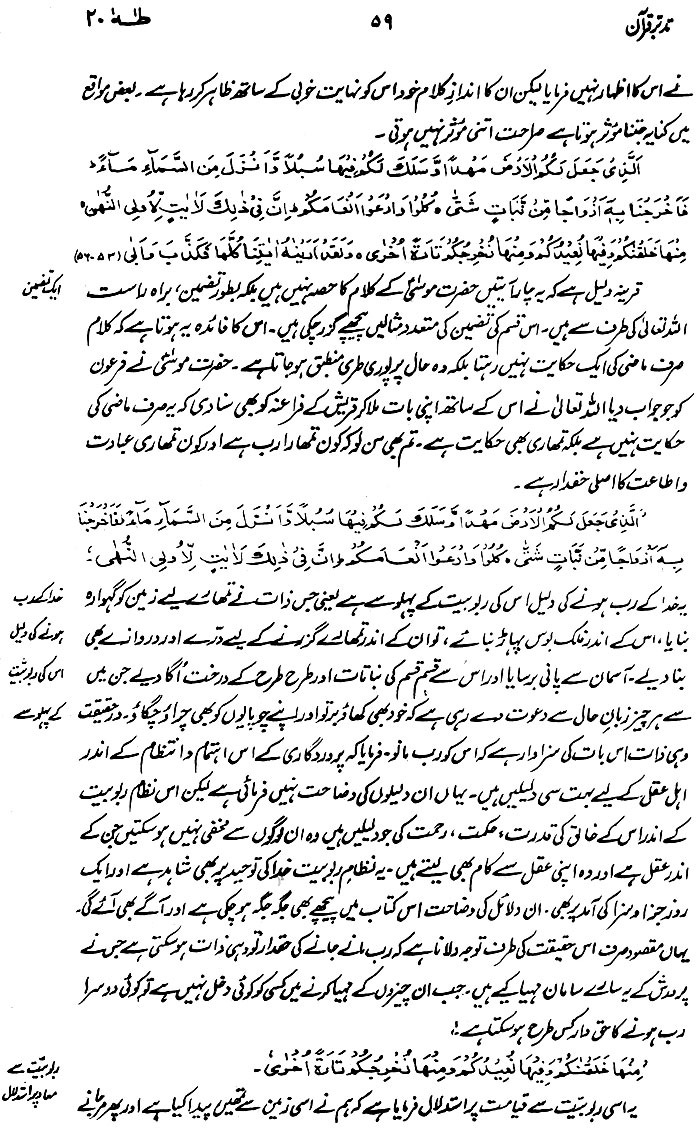 تدبر قرآن ۵۹ طٰهٰ ۲۰
نے اس کا اظہار نہیں فرمایا لیکن ان کا انداز کلام خود اس کو نہایت خوبی کے ساتھ ظاہر کر رہا ہے۔ بعض مواقع
میں کنایہ جتنا مؤثر ہوتا ہے صراحت اتنی مؤثر نہیں ہوتی۔
الَّذِیْ جَعَلَ لَکُمُ الْاَرْضَ مَهْدًا وَّسَلَكَ لَکُمْ فِیْهَا سُبُلًا وَّاَنْزَلَ مِنَ السَّمَآءِ مَآءً ؕ
فَاَخْرَجْنَا بِهٖٓ اَزْوَاجًا مِّنْ نَّبَاتٍ شَتّٰی ه کُلُوْا وَارْعَوْا اَنْعَامَکُمْ ؕ اِنَّ فِیْ ذٰلِكَ لَاٰیٰتٍ لِّاُولِی النُّهٰی ه
مِنْهَا خَلَقْنٰکُمْ وَفِیْهَا نُعِیْدُکُمْ وَمِنْهَا نُخْرِجُکُمْ تَارَةً اُخْرٰی ه وَلَقَدْ اَرَیْنٰهُ اٰیٰتِنَا کُلَّهَا فَکَذَّبَ وَاَبٰی (۵۳-۵۶)
قرینہ دلیل ہے کہ یہ چار آیتیں حضرت موسیٰؑ کے کلام کا حصہ نہیں ہیں بلکہ بطور تضمین، براہ راست
ایک تضمین
اللہ تعالیٰ کی طرف سے ہیں۔ اس قسم کی تضمین کی متعدد مثالیں پیچھے گزر چکی ہیں۔ اس کا فائدہ یہ ہوتا ہے کہ کلام
صرف ماضی کی ایک حکایت نہیں رہتا بلکہ وہ حال پر پوری طرح منطبق ہو جاتا ہے۔ حضرت موسیٰؑ نے فرعون
کو جو جواب دیا اللہ تعالیٰ نے اس کے ساتھ اپنی بات ملا کر قریش کے فراعنہ کو بھی سنا دی کہ یہ صرف ماضی کی
حکایت نہیں ہے بلکہ تمھاری بھی حکایت ہے۔ تم بھی سن لو کہ کون تمھارا رب ہے اور کون تمھاری عبادت
و اطاعت کا اصلی حقدار ہے۔
'الَّذِیْ جَعَلَ لَکُمُ الْاَرْضَ مَهْدًا وَّسَلَكَ لَکُمْ فِیْهَا سُبُلًا وَّاَنْزَلَ مِنَ السَّمَآءِ مَآءً ؕ فَاَخْرَجْنَا
بِهٖٓ اَزْوَاجًا مِّنْ نَّبَاتٍ شَتّٰی ه کُلُوْا وَارْعَوْا اَنْعَامَکُمْ ؕ اِنَّ فِیْ ذٰلِكَ لَاٰیٰتٍ لِّاُولِی النُّهٰی؛
یہ خدا کے رب ہونے کی دلیل اس کی ربوبیت کے پہلو سے ہے یعنی جس ذات نے تمھارے لیے زمین کو گہوارہ
خدا کے رب
بنایا، اس کے اندر فلک بوس پہاڑ بنائے، تو ان کے اندر تمھارے گزرنے کے لیے درّے اور دروازے بھی
ہونے کی دلیل
بنا دیے۔ آسمان سے پانی برسایا اور اس سے قسم قسم کی نباتات اور طرح طرح کے درخت اُگا دیے جن میں
اس کی ربوبیت
سے ہر چیز زبانِ حال سے دعوت دے رہی ہے کہ خود بھی کھاؤ برتو اور اپنے چوپایوں کو بھی چراؤ چگاؤ۔ درحقیقت
کے پہلو سے
وہی ذات اس بات کی سزاوار ہے کہ اس کو رب مانو۔ فرمایا کہ پروردگاری کے اس اہتمام و انتظام کے اندر
اہل عقل کے لیے بہت سی دلیلیں ہیں۔ یہاں ان دلیلوں کی وضاحت نہیں فرمائی ہے لیکن اس نظام ربوبیت
کے اندر اس کے خالق کی قدرت، حکمت، رحمت کی جو دلیلیں ہیں وہ ان لوگوں سے مخفی نہیں ہو سکتیں جن کے
اندر عقل ہے اور وہ اپنی عقل سے کام بھی لیتے ہیں۔ یہ نظام ربوبیت خدا کی توحید پر بھی شاہد ہے اور ایک
روز جزا و سزا کی آمد پر بھی۔ ان دلائل کی وضاحت اس کتاب میں پیچھے بھی جگہ جگہ ہو چکی ہے اور آگے بھی آئے گی۔
یہاں مقصود صرف اس حقیقت کی طرف توجہ دلانا ہے کہ رب مانے جانے کی حقدار تو وہی ذات ہو سکتی ہے جس نے
پرورش کے یہ سارے سامان مہیا کیے ہیں۔ جب ان چیزوں کے مہیا کرنے میں کسی کو کوئی دخل نہیں ہے تو کوئی دوسرا
رب ہونے کا حق دار کس طرح ہو سکتا ہے!
'مِنْهَا خَلَقْنٰکُمْ وَفِیْهَا نُعِیْدُکُمْ وَمِنْهَا نُخْرِجُکُمْ تَارَةً اُخْرٰی'۔
ربوبیت سے
یہ اسی ربوبیت سے قیامت پر استدلال فرمایا ہے کہ ہم نے اسی زمین سے تمھیں پیدا کیا ہے اور پھر مر جانے
معاد پر استدلال